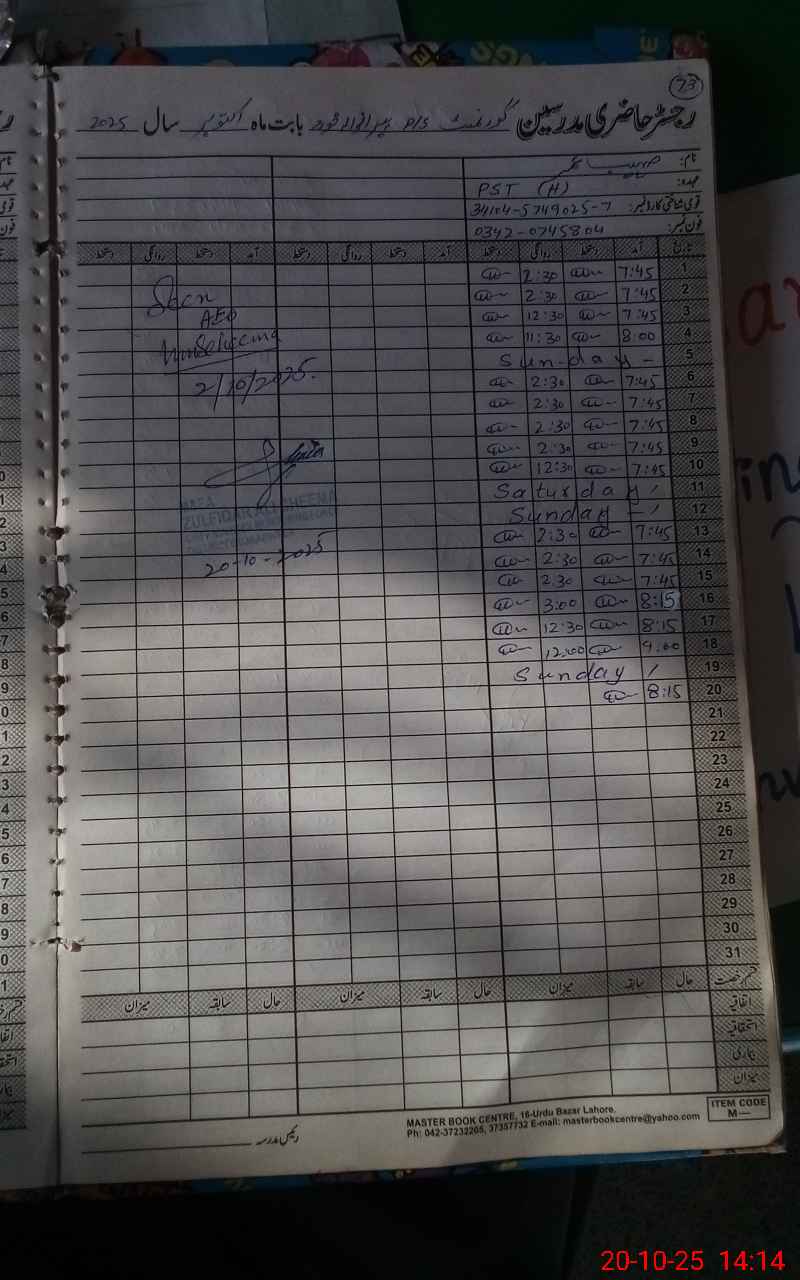 73
رجسٹر حاضری مدرسین گورنمنٹ P/S بابت ماہ اکتوبر سال 2025
نام:
عہدہ: PST (H)
قومی شناختی کارڈ نمبر: 34104-5749025-7
فون نمبر: 0342-0745804
تاریخ آمد دستخط روانگی دستخط آمد دستخط روانگی دستخط آمد دستخط روانگی دستخط
1 7:45 2:30
2 7:45 2:30
3 7:45 12:30
4 8:00 11:30
5 Sunday -
6 7:45 2:30
7 7:45 2:30
8 7:45 2:30
9 7:45 2:30
10 7:45 12:30
11 Saturday
12 Sunday -
13 7:45 2:30
14 7:45 2:30
15 7:45 2:30
16 8:15 3:00
17 8:15 12:30
18 9:00 12:00
19 Sunday
20 8:15
21
22
23
24
25
26
27
28
29
30
31
Seen
AEO
2/10/2025.
ZULFIQAR ALI CHEEMA
20-10-2025
قسم رخصت حال سابقہ میزان حال سابقہ میزان حال سابقہ میزان
اتفاقیہ
استحقاقیہ
بیماری
میزان
رئیس مدرسہ
MASTER BOOK CENTRE, 16-Urdu Bazar Lahore.
Ph: 042-37232265, 37357732 E-mail: masterbookcentre@yahoo.com
ITEM CODE
M—
20-10-25 14:14